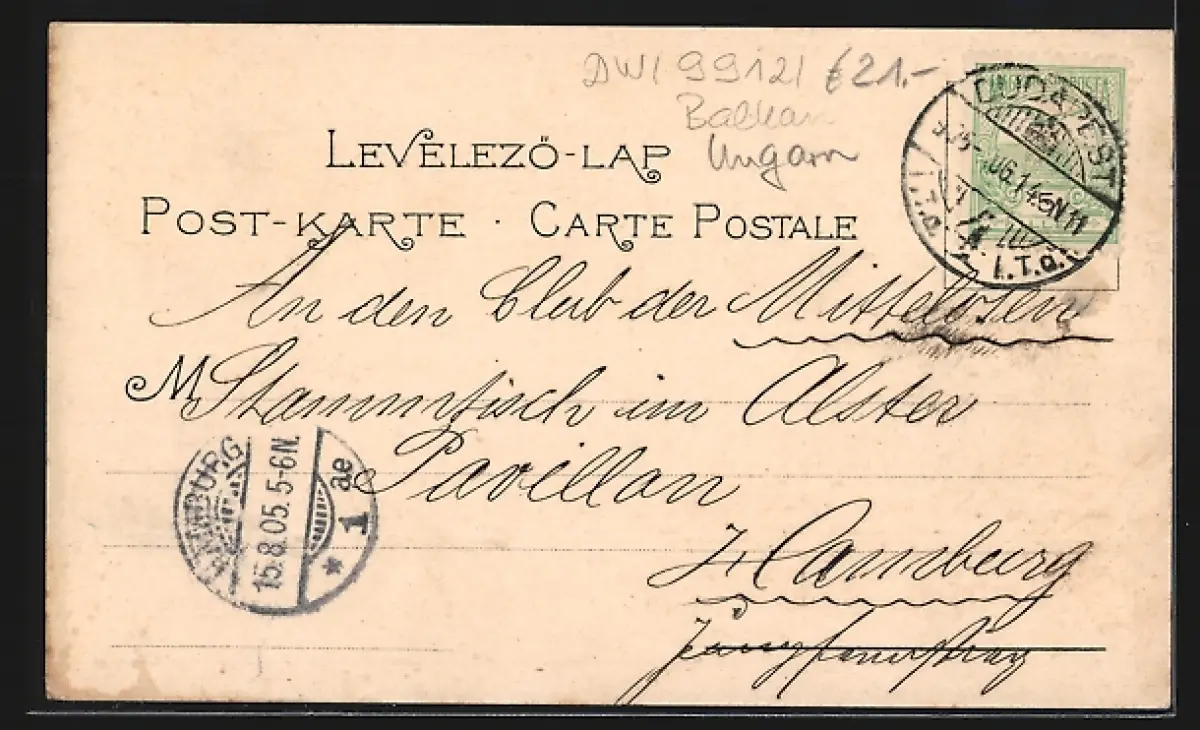 DWI 99121 €21.-
Balkan
Ungarn
LEVELEZŐ-LAP
POST-KARTE · CARTE POSTALE
BUDAPEST
I.T.a.
An den Club der Mittelosen
M Stammtisch im Alster
Pavillon
Hamburg
Jungfernstieg
HAMBURG
15.8.05. 5-6N.
* 1 ae